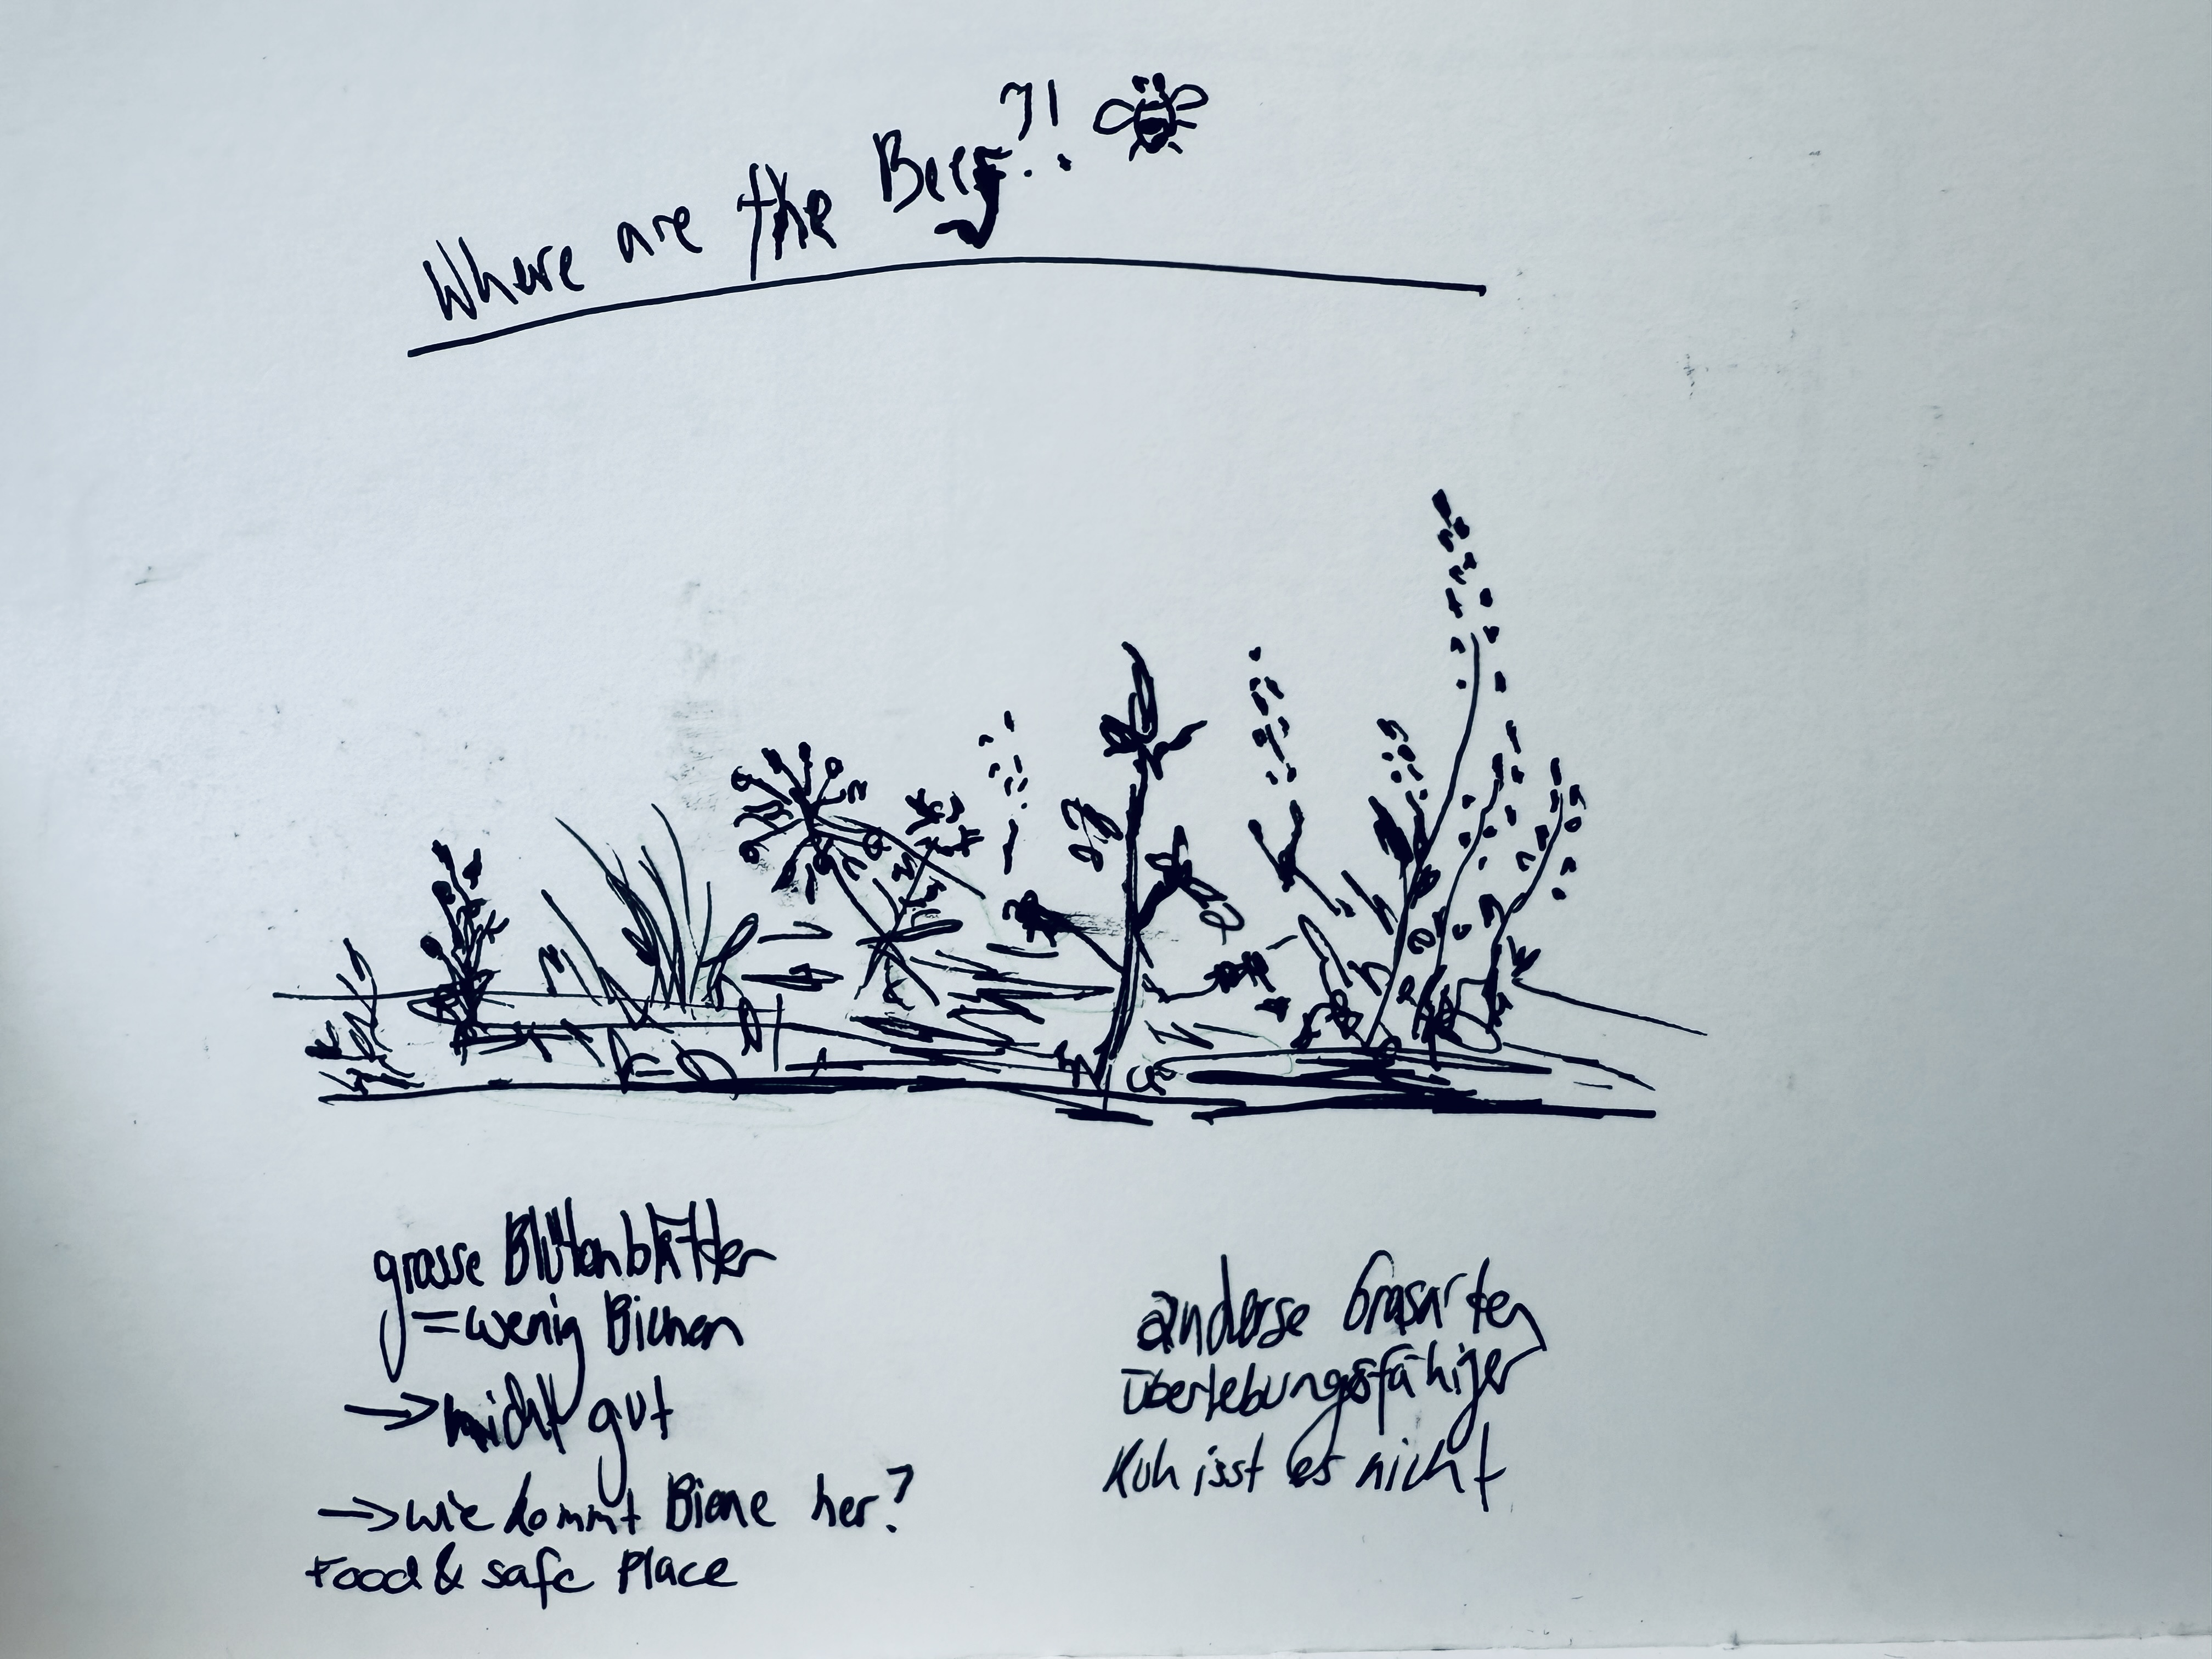 Where are the Bees?!
grosse Blütenblätter
=wenig Bienen
→nicht gut
→wie kommt Biene her?
Food & safe Place
anderse Grasarten
überlebungsfähiger
Kuh isst es nicht